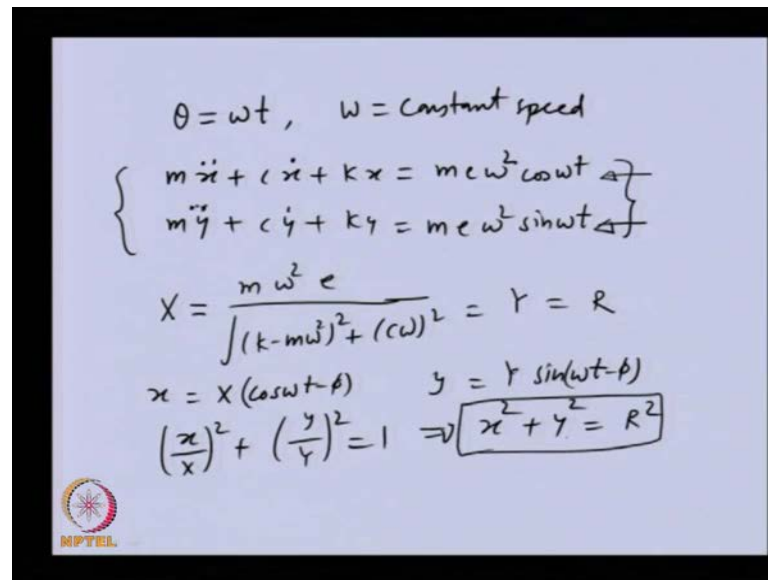 θ = ωt, ω = constant speed
mẍ + cẋ + kx = meω² cosωt
mÿ + cẏ + ky = meω² sinωt
X = mω²e / √(k-mω²)² + (cω)² = Y = R
x = X(cosωt-ϕ) y = Y sin(ωt-ϕ)
(x/X)² + (y/Y)² = 1 ⇒ x² + y² = R²
NPTEL